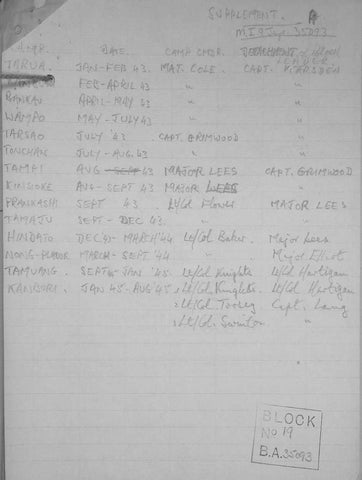 SUPPLEMENT. A
M I 9 Jap 35093
CAMP. DATE. CAMP CMDR. DETACHMENT or BLOCK LEADER
TARUA. JAN-FEB 43. MAJ. COLE. CAPT. MARSDEN
FEB-APRIL 43 " "
APRIL-MAY 43 " "
WAMPO MAY-JULY 43 " "
TARSAO JULY '43 CAPT. GRIMWOOD "
TONCHAN JULY-AUG. 43 " "
TAMAI AUG SEPT 43 MAJOR LEES CAPT. GRIMWOOD
KINSIOKE AUG-SEPT 43 MAJOR LEES "
PRANKASHI SEPT 43 Lt/Col Flower MAJOR LEES
TAMAJU SEPT-DEC. 43. " "
HINDATO DEC'43-MARCH'44 Lt/Col Baker. Major Lees
NONG-PLADUK MARCH-SEPT '44 " Major Elliot
TAMUANG. SEPT 44-JAN '45 Lt/Col Knights Lt/Col Hartigan
KANBURI. JAN 45-AUG '45 1 Lt/Col Knights. Lt/Col Hartigan
2 Lt/Col Toosey Capt. Laing
3 Lt/Col. Swinton "
BLOCK
No 19
B.A. 35093